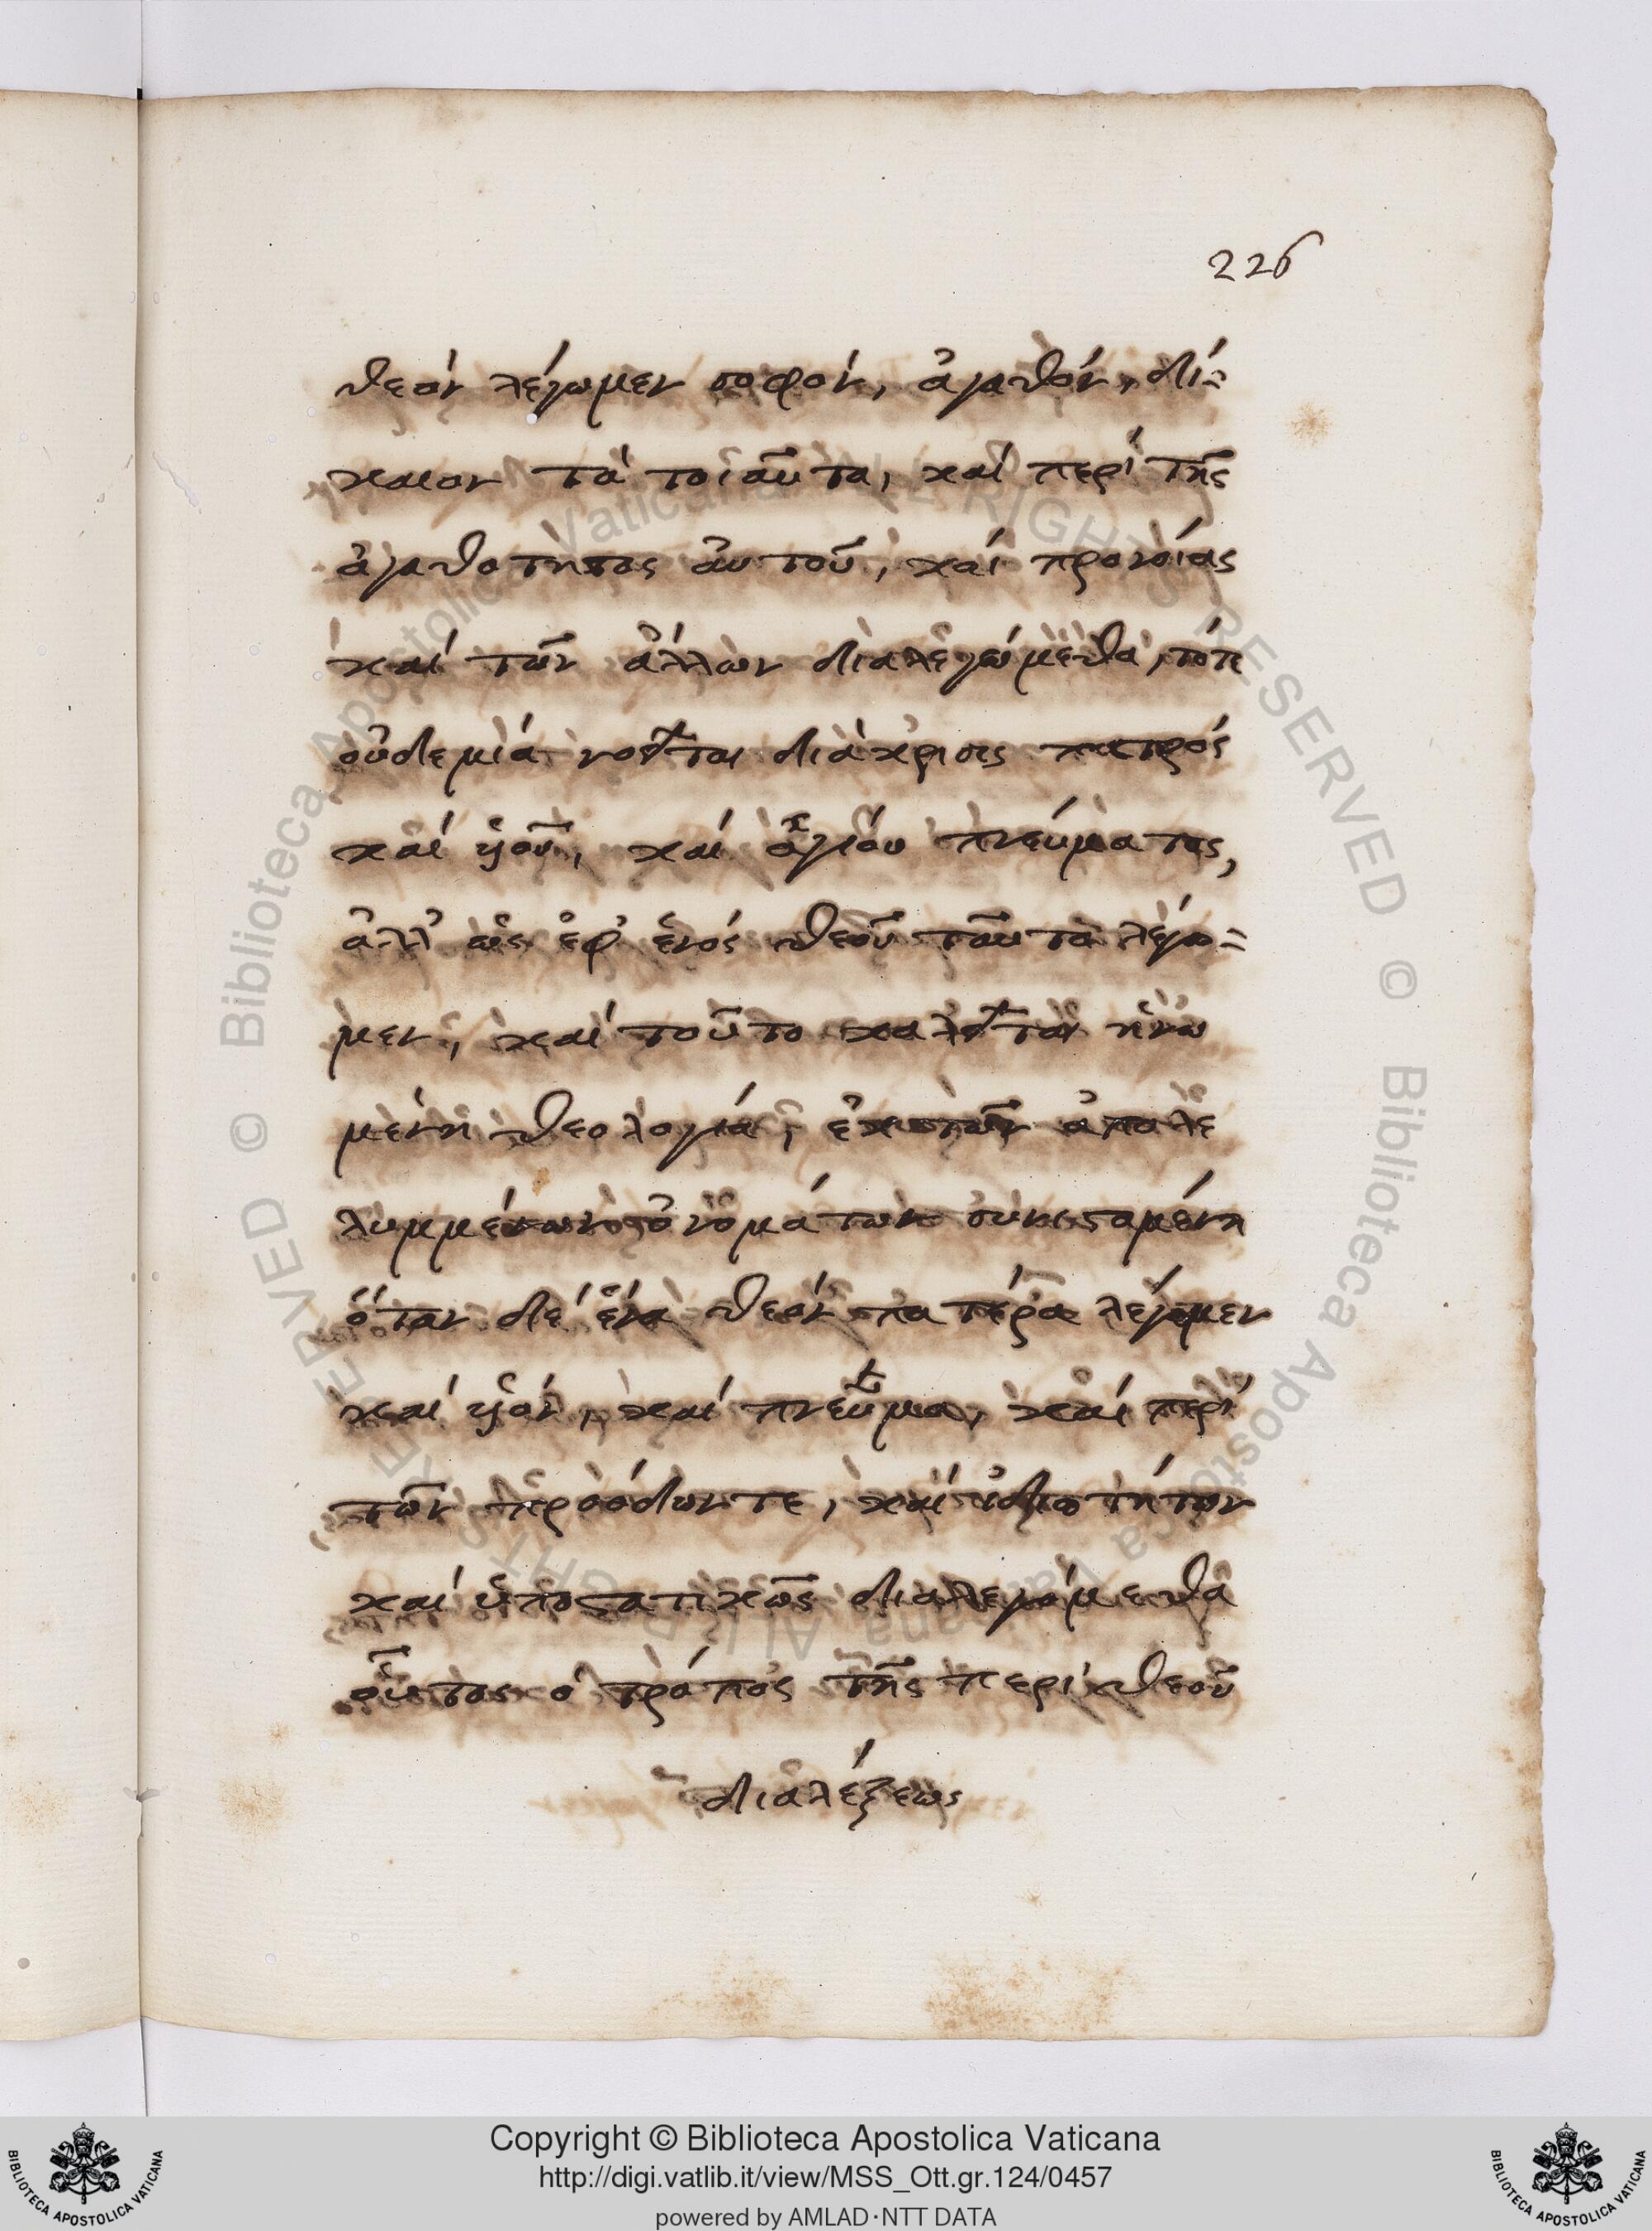 226
θεὸν λέγωμεν σοφὸν, ἀγαθὸν, δί-
καιον τὰ τοιαῦτα, καὶ περὶ τῆς
ἀγαθοτητος ἀυτοῦ, καὶ προνοίας
καὶ τῶν ἄλλων διαλεγώμεθα, τότε
οὐδεμία νοεῖται διάκρισις πατρὸς
καὶ ὑιοῦ, καὶ ἁγίου πνεύματος,
ἀλλ' ὡς ἐφ' ἑνὸς θεοῦ ταῦτα λέγο-
μεν, καὶ τοῦτο καλεῖται ἡνω
μένη θεολογία, ἐκ τῶν ἀπολε
λυμμένων ὀνομάτων συνισταμένη
ὅταν δὲ ἕνα θεὸν πατέρα λέγομεν
καὶ ὑιὸν, καὶ πνεῦμα, καὶ περὶ
τῶν προόδων τε, καὶ ἰδιοτήτων
καὶ ὑποστατικῶς διαλεγόμεθα
οὗτος ὁ τρόπος τῆς περὶ θεοῦ
διαλέξεως
Copyright © Biblioteca Apostolica Vaticana
http://digi.vatlib.it/view/MSS_Ott.gr.124/0457
powered by AMLAD·NTT DATA
BIBLIOTECA APOSTOLICA VATICANA
BIBLIOTECA APOSTOLICA VATICANA
© Biblioteca Apostolica Vaticana ALL RIGHTS RESERVED
© Biblioteca Apostolica Vaticana ALL RIGHTS RESERVED